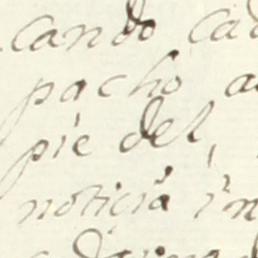 cando cad
pacho a
pie del,
noticia in